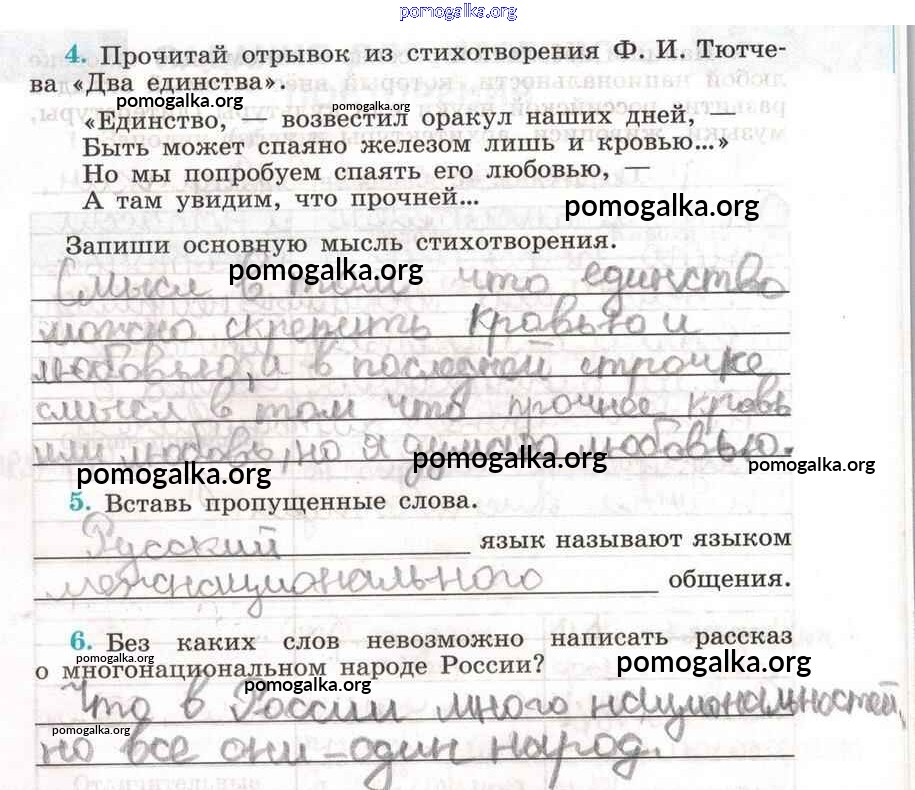 pomogalka.org
4. Прочитай отрывок из стихотворения Ф. И. Тютче-
ва «Два единства».
pomogalka.org pomogalka.org
«Единство, — возвестил оракул наших дней, —
Быть может спаяно железом лишь и кровью...»
Но мы попробуем спаять его любовью, —
А там увидим, что прочней...
pomogalka.org
Запиши основную мысль стихотворения.
pomogalka.org
Смысл в том что единство
можно скрепить кровью и
любовью, и в последней строчке
смысл в том что прочнее кровь
или любовь, но я думаю любовью.
pomogalka.org pomogalka.org pomogalka.org
5. Вставь пропущенные слова.
Русский язык называют языком
межнационального общения.
6. Без каких слов невозможно написать рассказ
о многонациональном народе России?
pomogalka.org pomogalka.org
pomogalka.org
Что в России много национальностей,
но все они – один народ.
pomogalka.org